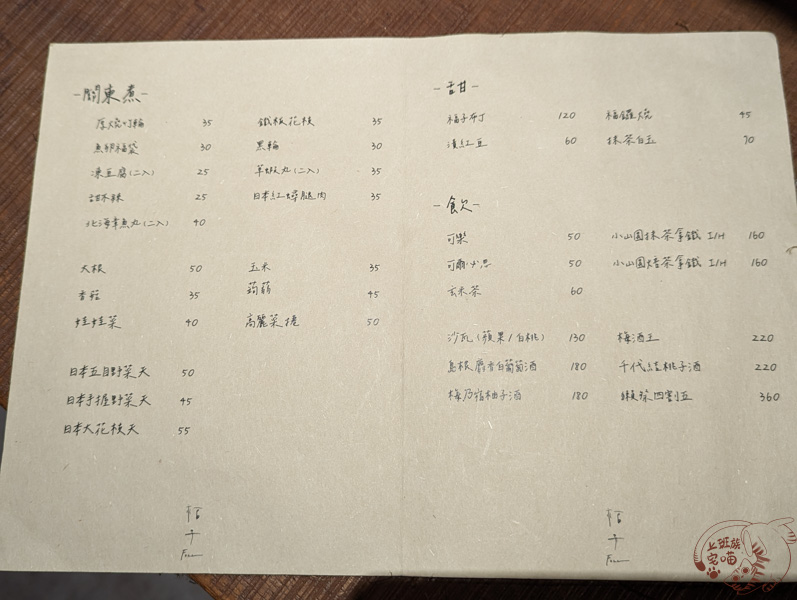 -關東煮-
厚燒竹輪 35 鐵板花枝 35
魚卵福袋 30 黑輪 30
凍豆腐(二入) 25 羊蝦丸(二入) 35
甜不辣 25 日本紅蟳腿肉 35
北海章魚丸(二入) 40
大根 50 玉米 35
香菇 35 蒟蒻 45
娃娃菜 40 高麗菜捲 50
日本五目野菜天 50
日本手握野菜天 45
日本大花枝天 55
-甜-
福子布丁 120 福罐燒 45
漬紅豆 60 抹茶白玉 70
-飲-
可樂 50 小山園抹茶拿鐵 I/H 160
可爾必思 50 小山園焙茶拿鐵 I/H 160
玄米茶 60
沙瓦(蘋果/白桃) 130 梅酒王 220
島根麝香白葡萄酒 180 千代結桃子酒 220
梅乃宿柚子酒 180 獺祭四割五 360
上班族
宅喵